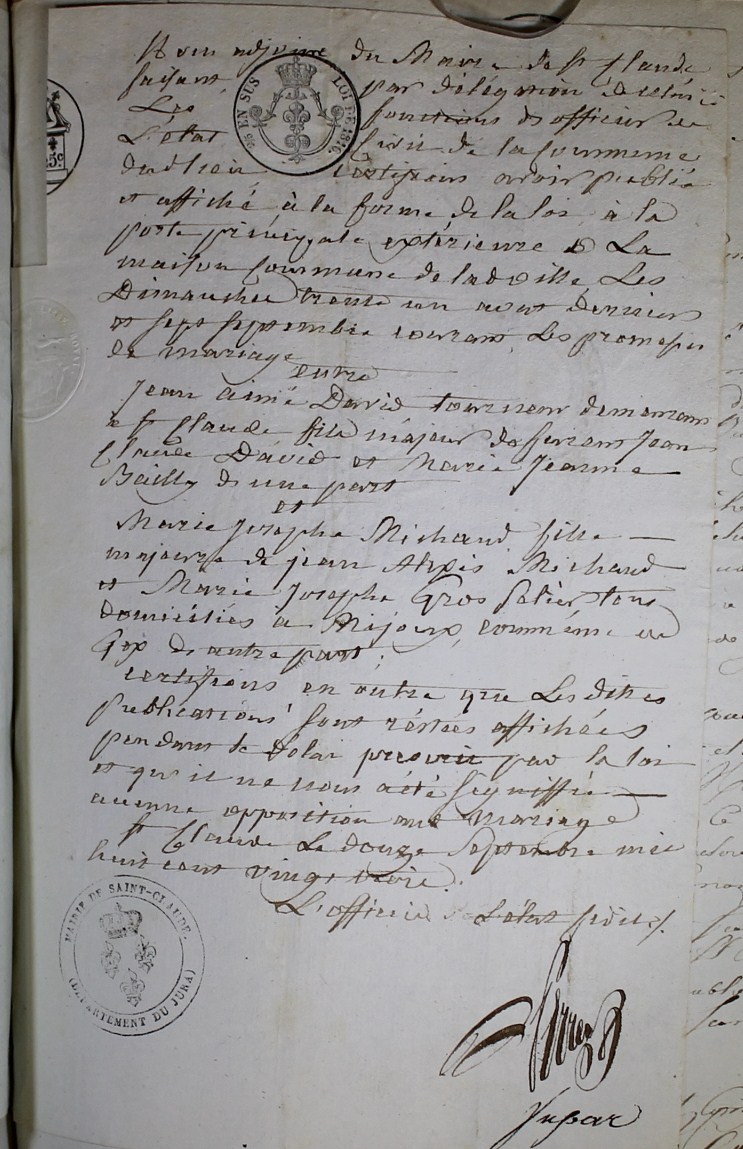 adjoint du Maire de St Claude
faisant par délégation
Les fonctions d'officier de
L'état Civil de la Commune
dudit lieu certifions avoir publié
et affiché à la forme de la loi à la
porte principale extérieure de La
maison Commune de ladte ville, Les
Dimanches trente un aout dernier
et sept septembre courrant, Les promesses
de mariage
entre
Jean aimé David tourneur demeurant
a St Claude fils majeur de Jean
Claude David et Marie Jeanne
Bailly d'une part
et
Marie Josephe Michaud fille
majeure de jean Alexis Michaud
et Marie Josephe Gros tous
domiciliés à Mijoux, commune de
Gex d'autre part;
certifions en outre que Les dites
publications sont réstées affichées
pendant le délai prescrit par la loi
et qu'il ne nous a été signiffié
aucune opposition aud mariage
St Claude Le douze Septembre mil
huit cent vingt trois.
L'officier de L'état civil
EN SUS
LOI DE 1816.
MAIRIE DE SAINT-CLAUDE.
(DÉPARTEMENT DU JURA)